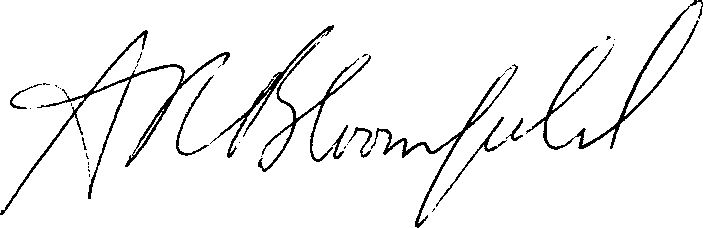 A R Bloomfield